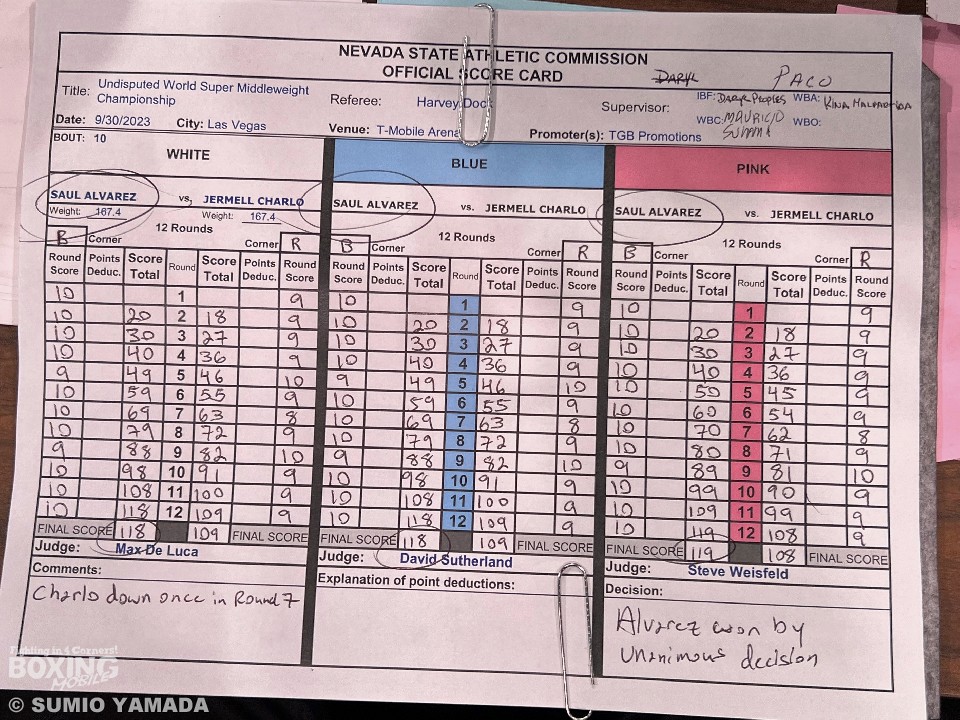 NEVADA STATE ATHLETIC COMMISSION
OFFICIAL SCORE CARD
DARYL PACO
Title: Undisputed World Super Middleweight Championship
Referee: Harvey Dock
Supervisor:
IBF: DARYL PEOPLES WBA: KINA
WBC: MAURICIO WBO:
Date: 9/30/2023 City: Las Vegas Venue: T-Mobile Arena Promoter(s): TGB Promotions
BOUT: 10
WHITE BLUE PINK
SAUL ALVAREZ vs, JERMELL CHARLO SAUL ALVAREZ vs. JERMELL CHARLO SAUL ALVAREZ vs. JERMELL CHARLO
Weight: 167.4 Weight: 167.4
12 Rounds 12 Rounds 12 Rounds
B Corner Corner R B Corner Corner R B Corner Corner R
Round Score Points Deduc. Score Total Round Score Total Points Deduc. Round Score Round Score Points Deduc. Score Total Round Score Total Points Deduc. Round Score Round Score Points Deduc. Score Total Round Score Total Points Deduc. Round Score
10 1 9 10 1 9 10 1 9
10 20 2 18 9 10 20 2 18 9 10 20 2 18 9
10 30 3 27 9 10 30 3 27 9 10 30 3 27 9
10 40 4 36 9 10 40 4 36 9 10 40 4 36 9
9 49 5 46 10 9 49 5 46 10 10 50 5 45 9
10 59 6 55 9 10 59 6 55 9 10 60 6 54 9
10 69 7 63 8 10 69 7 63 8 10 70 7 62 8
10 79 8 72 9 10 79 8 72 9 10 80 8 71 9
9 88 9 82 10 9 88 9 82 10 9 89 9 81 10
10 98 10 91 9 10 98 10 91 9 10 99 10 90 9
10 108 11 100 9 10 108 11 100 9 10 109 11 99 9
10 118 12 109 9 10 118 12 109 9 10 119 12 108 9
FINAL SCORE 118 109 FINAL SCORE FINAL SCORE 118 109 FINAL SCORE FINAL SCORE 119 108 FINAL SCORE
Judge: Max De Luca Judge: David Sutherland Judge: Steve Weisfeld
Comments: Explanation of point deductions: Decision:
Charlo down once in Round 7
Alvarez won by
Unanimous decision
Fighting in 4 Corners!
BOXING
MOBILE
© SUMIO YAMADA